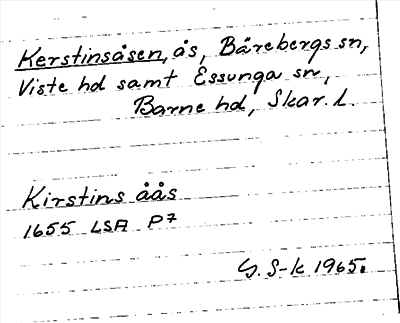 Kerstinsåsen, ås, Bärebergs sn,
Viste hd samt Essunga sn,
Barne hd, Skar. l.
Kirstins åås
1655 LSA P7
G. S-k 1965.